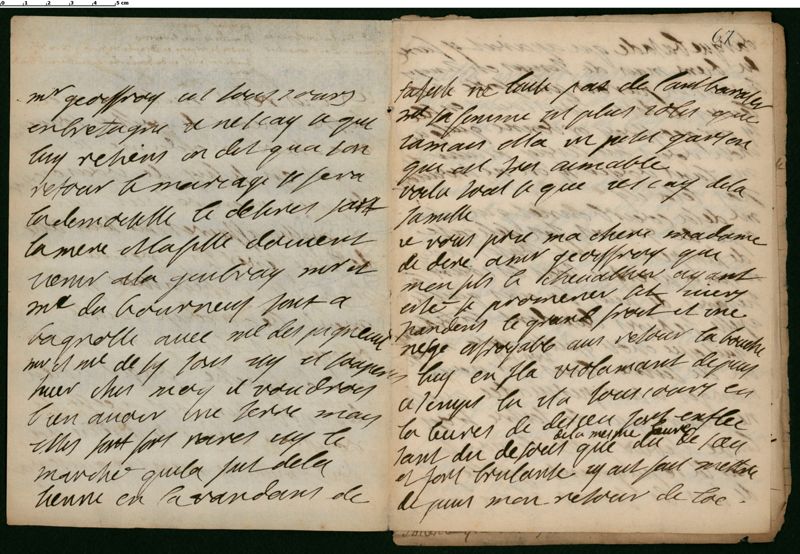 0 1 2 3 4 5 cm
mr geoffroy est tousiours
en bretagne ie ne scay ce que
luy retiens on dit qua son
retour le mariage se fera
la demoiselle le desires fort
la mere et la fille doivent
venir a la guibray mr et
me du bourneuf sont a
bagnolle avec me
mr et me de sy sont icy il
hier ches moy il voudrois
bien avoir une terre mais
elles sont fort rares icy le
marche quila fut de la
sienne en la vandant de
62
ne laise pas de l'anbarasser
sa femme est plus iolie que
iamais ella un petit garson
que est fort aimable
voila tout ce que ie scay de la
famille
ie vous prie ma chere madame
de dire a mr geoffroy que
mon fils le chevallier ayant
este se promener cet hivers
pendent le grand froit et une
nege afroyable aus retour la bouche
luy enfla violamant depuis
ce temps la il a tousiours eu
la leuvres de desseu fort enflee
tant du desous que du
de la mesme
et fort brulante iy ait fait mettre
depuis mon retour de